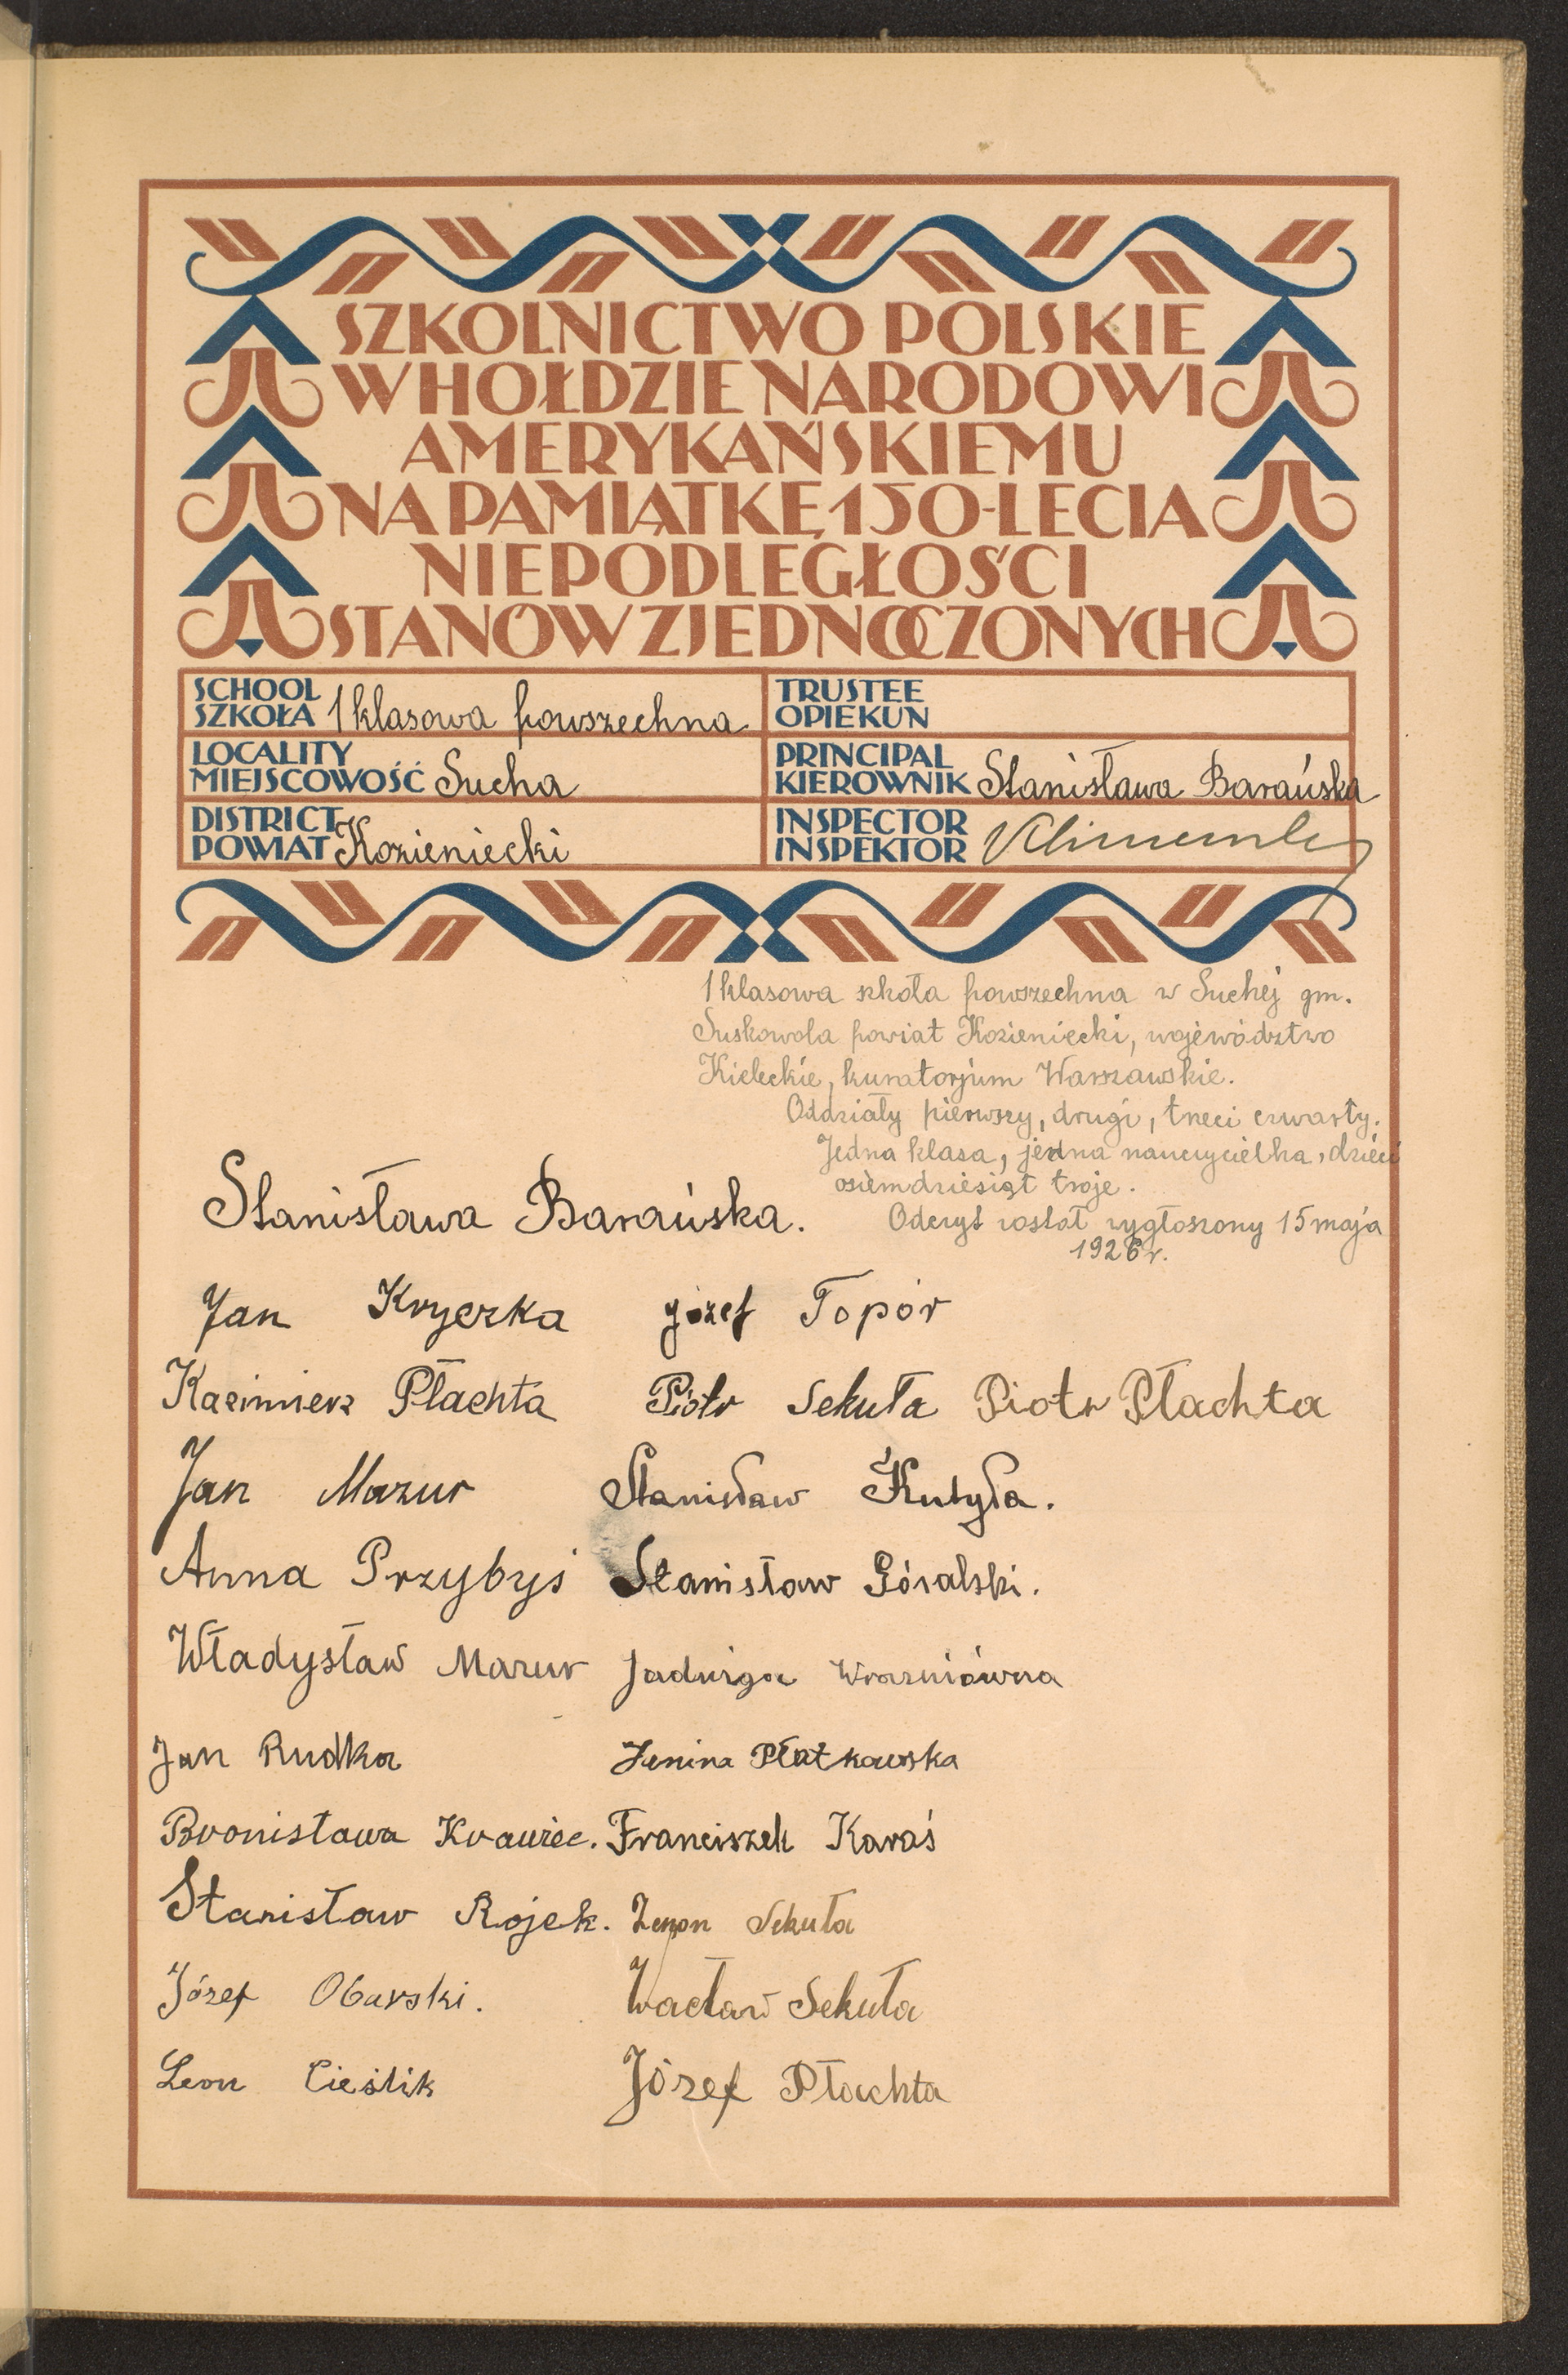 SZKOLNICTWO POLSKIE
W HOŁDZIE NARODOWI
AMERYKAŃSKIEMU
NA PAMIĄTKĘ 150-LECIA
NIEPODLEGŁOŚCI
STANÓW ZJEDNOCZONYCH
SCHOOL
SZKOŁA 1 klasowa powszechna
TRUSTEE
OPIEKUN
LOCALITY
MIEJSCOWOŚĆ Sucha
PRINCIPAL
KIEROWNIK Stanisława Barańska
DISTRICT
POWIAT Kozieniecki
INSPECTOR
INSPEKTOR
1 klasowa szkoła powszechna w Suchej gm.
Suskowola powiat Kozieniecki, województwo
Kieleckie, kuratorjum Warszawskie.
Oddziały pierwszy, drugi, trzeci czwarty.
Jedna klasa, jedna nauczycielka, dzieci
osiemdziesiąt troje.
Odczyt został wygłoszony 15 maja
1926 r.
Stanisława Barańska.
Jan Kryczka Józef Topór
Kazimierz Płachta Piotr Sekuła Piotr Płachta
Jan Mazur Stanisław Kutyła.
Anna Przybyś Stanisław Góralski.
Władysław Mazur Jadwiga Wrazniówna
Jan Rudka Janina Płatkowska
Bronisława Krawiec. Franciszek Karaś
Stanisław Rojek. Zenon Sekuła
Józef Obarski. Wacław Sekuła
Leon Cieślik Józef Płachta